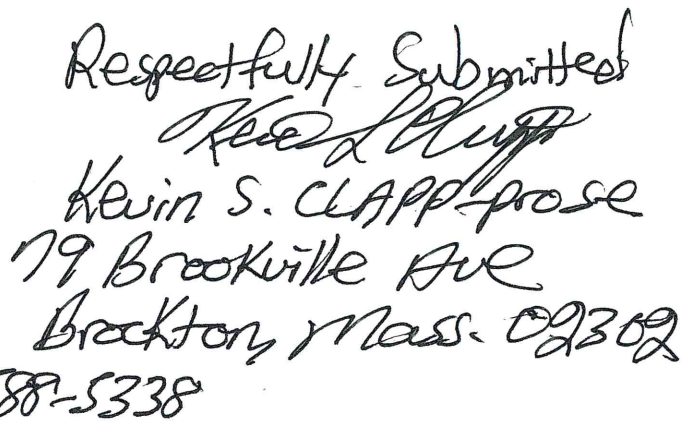 Respectfully Submitted
Kevin S. CLAPP-prose
79 Brookville Ave
Brockton, Mass. 02302
588-5338